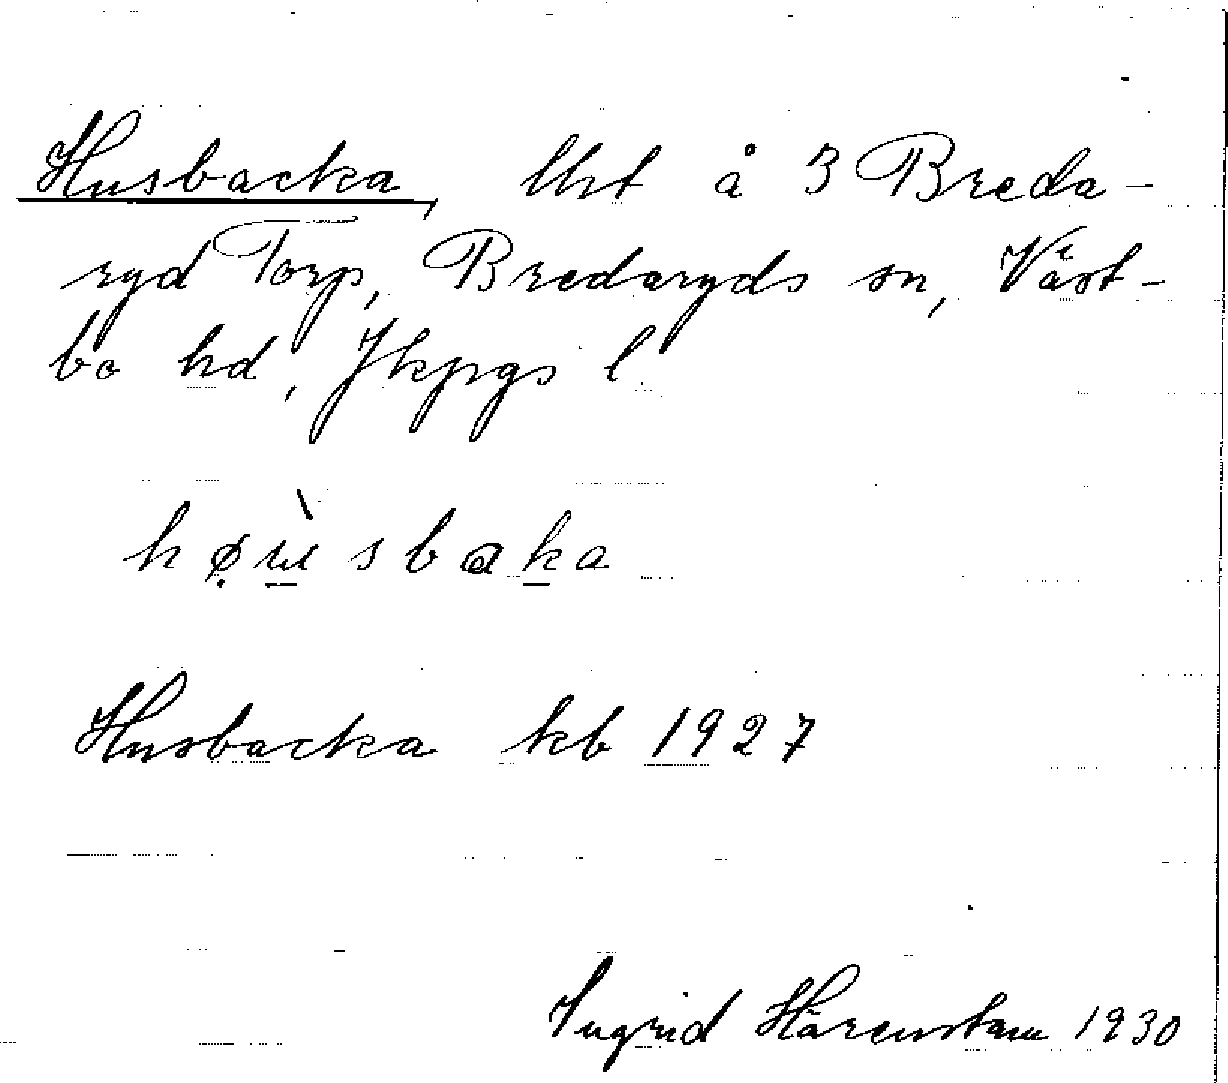 Husbacka, lht å 3 Breda-
ryd Torp, Bredaryds sn, Väst-
bo hd, Jkpgs l
Husbacka kb 1927
Ingrid Härenstam 1930